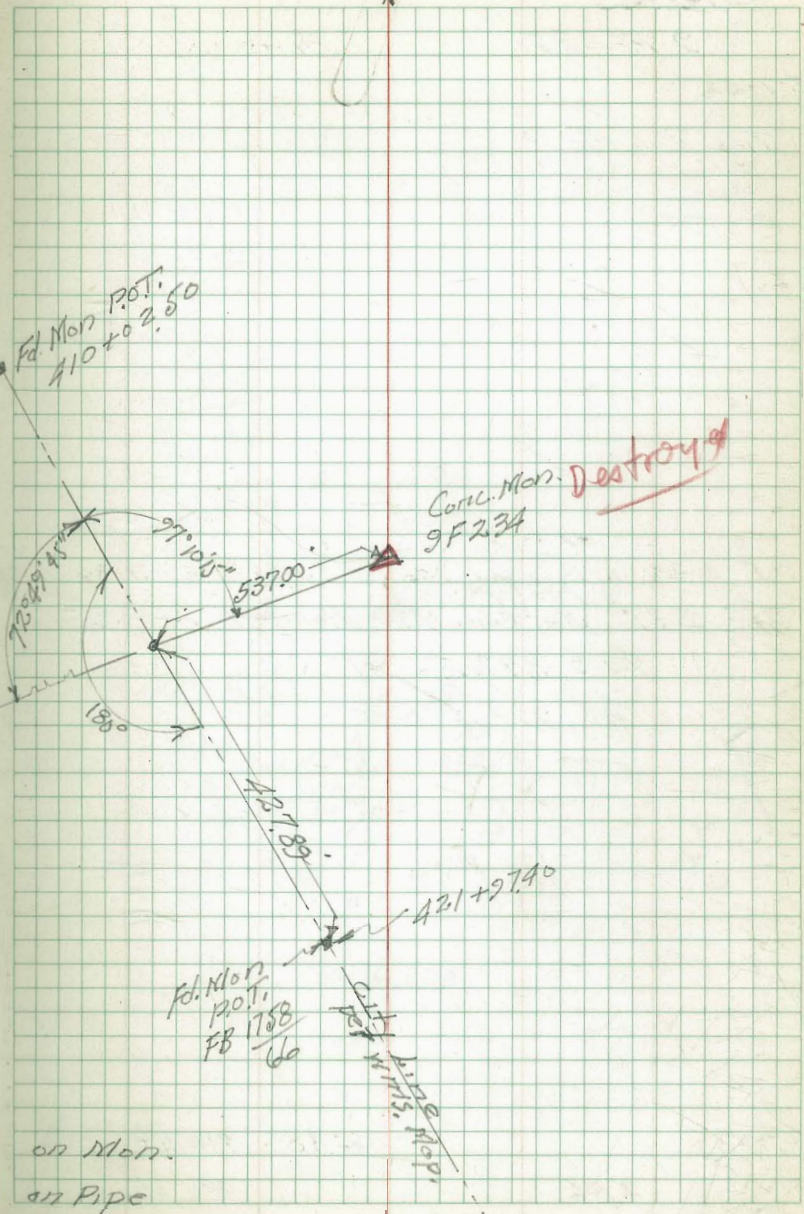 Fd. Mon P.O.T.
410+02.50
Conc. Mon. Destroyed
9F234
97°10'15"
537.00'
72°49'45"
180°
427.89'
421+97.40
Fd. Mon
P.O.T.
FB 1758
66
City Line
per Map.
on Mon.
on Pipe